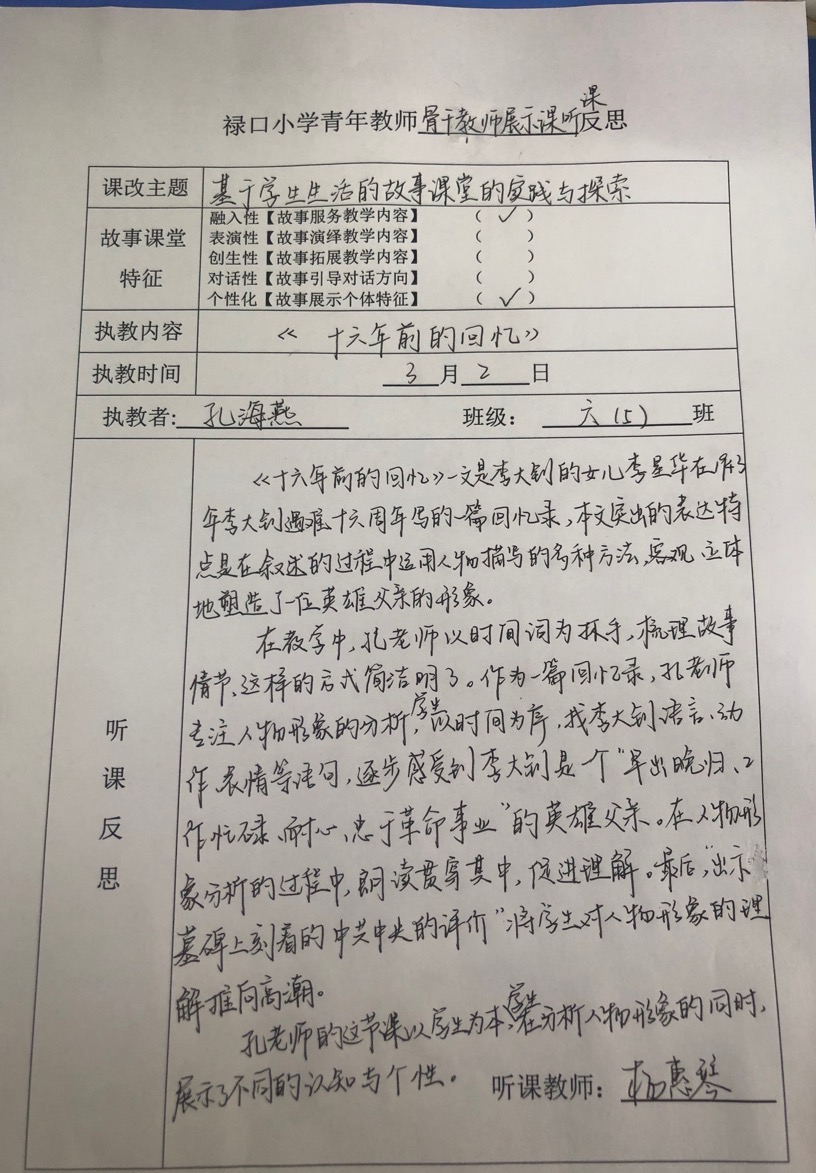 禄口小学青年教师骨干教师展示课听课反思
课改主题 基于学生生活的故事课堂的实践与探索
故事课堂特征
融入性【故事服务教学内容】 （ ✓ ）
表演性【故事演绎教学内容】 （ ）
创生性【故事拓展教学内容】 （ ）
对话性【故事引导对话方向】 （ ）
个性化【故事展示个体特征】 （ ✓ ）
执教内容 《十六年前的回忆》
执教时间 3月2日
执教者：孔海燕 班级：六（5）班
听课反思
《十六年前的回忆》一文是李大钊的女儿李星华在1943
年李大钊遇难十六周年写的一篇回忆录，本文突出的表达特
点是在叙述的过程中运用人物描写的多种方法，客观、立体
地塑造了一位英雄父亲的形象。
在教学中，孔老师以时间词为抓手，梳理故事
情节，这样的方式简洁明了。作为一篇回忆录，孔老师
专注人物形象的分析，学生以时间为序，找李大钊语言、动
作、表情等语句，逐步感受到李大钊是一个“早出晚归、工
作忙碌、耐心、忠于革命事业”的英雄父亲。在人物形
象分析的过程中，朗读贯穿其中，促进理解。最后，“出示
墓碑上刻着的中共中央的评价”将学生对人物形象的理
解推向高潮。
孔老师的这节课以学生为本，学生在分析人物形象的同时，
展示了不同的认知与个性。 听课教师：杨惠琴